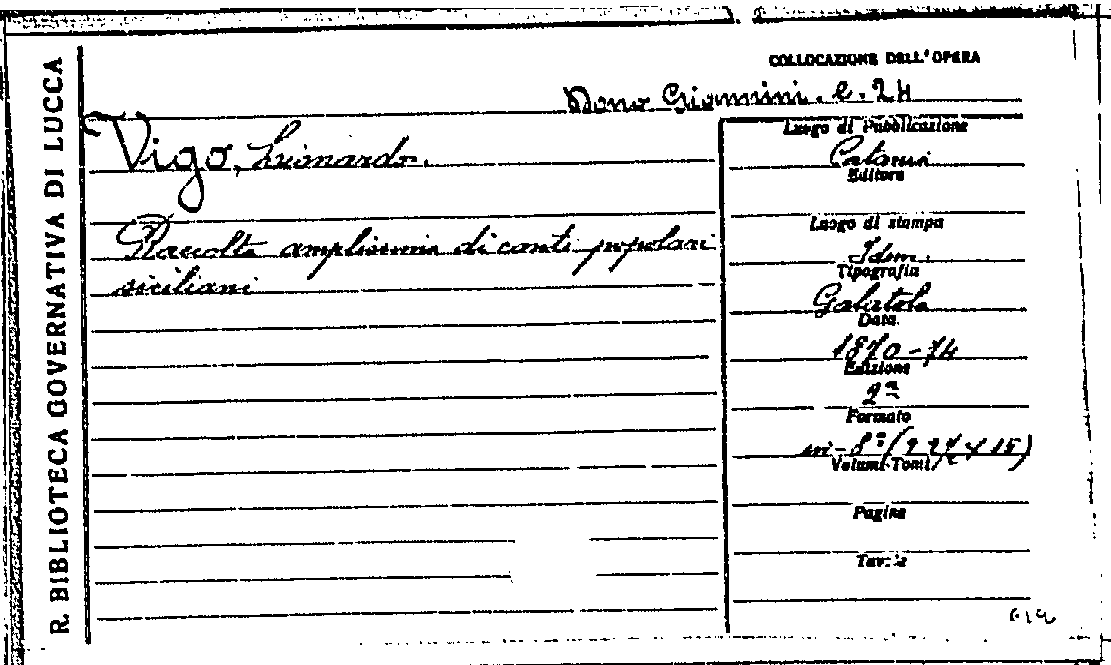 R. BIBLIOTECA GOVERNATIVA DI LUCCA
COLLOCAZIONE DELL'OPERA
Dono Giannini. e. 24
Vigo, Lionardo.
Raccolta amplissima di canti popolari
siciliani
Luogo di Pubblicazione
Catania
Editore
Luogo di stampa
Idem.
Tipografia
Galatola
Data
1870-74
Edizione
2ª
Formato
in-8º
Volumi-Tomi
Pagine
Tavole